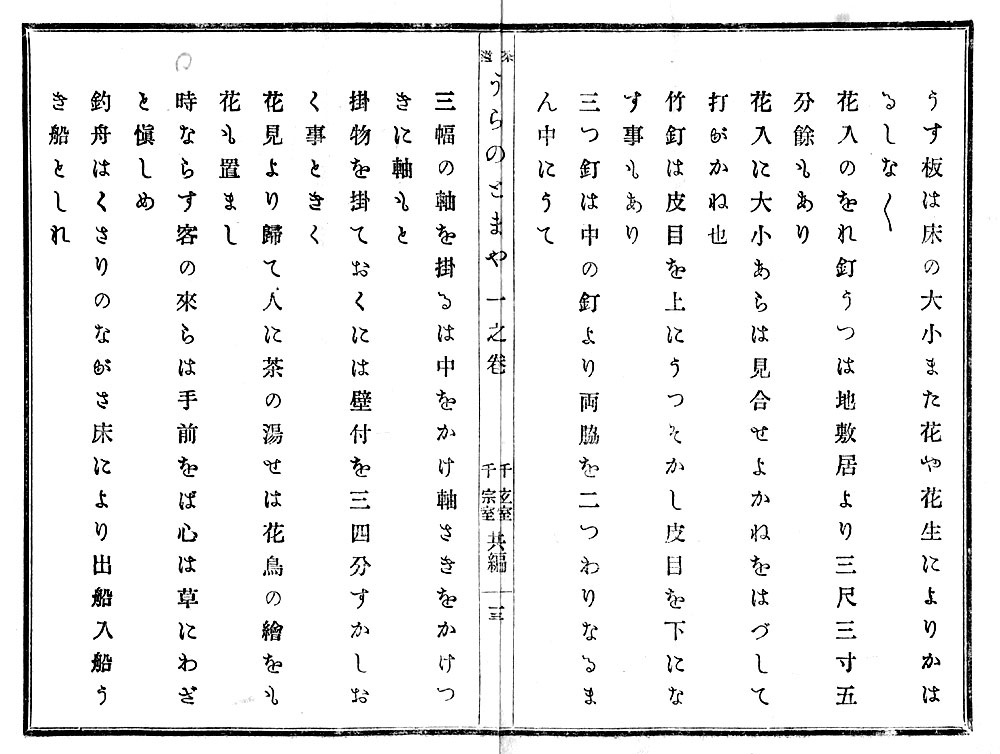 うす板は床の大小また花や花生によりかは
るしなく
花入のをれ釘うつは地敷居より三尺三寸五
分餘もあり
花入に大小あらは見合せよかねをはづして
打がかね也
竹釘は皮目を上にうつそかし皮目を下にな
す事もあり
三つ釘は中の釘より両脇を二つわりなるま
ん中にうて
茶道
うらのとまや 一之卷
千玄室
千宗室
共編
十三
三幅の軸を掛るは中をかけ軸さきをかけつ
きに軸もと
掛物を掛ておくには壁付を三四分すかしお
く事ときく
花見より歸て人に茶の湯せは花鳥の繪をも
花も置まし
時ならす客の來らは手前をば心は草にわざ
と愼しめ
釣舟はくさりのながさ床により出船入船う
き船としれ